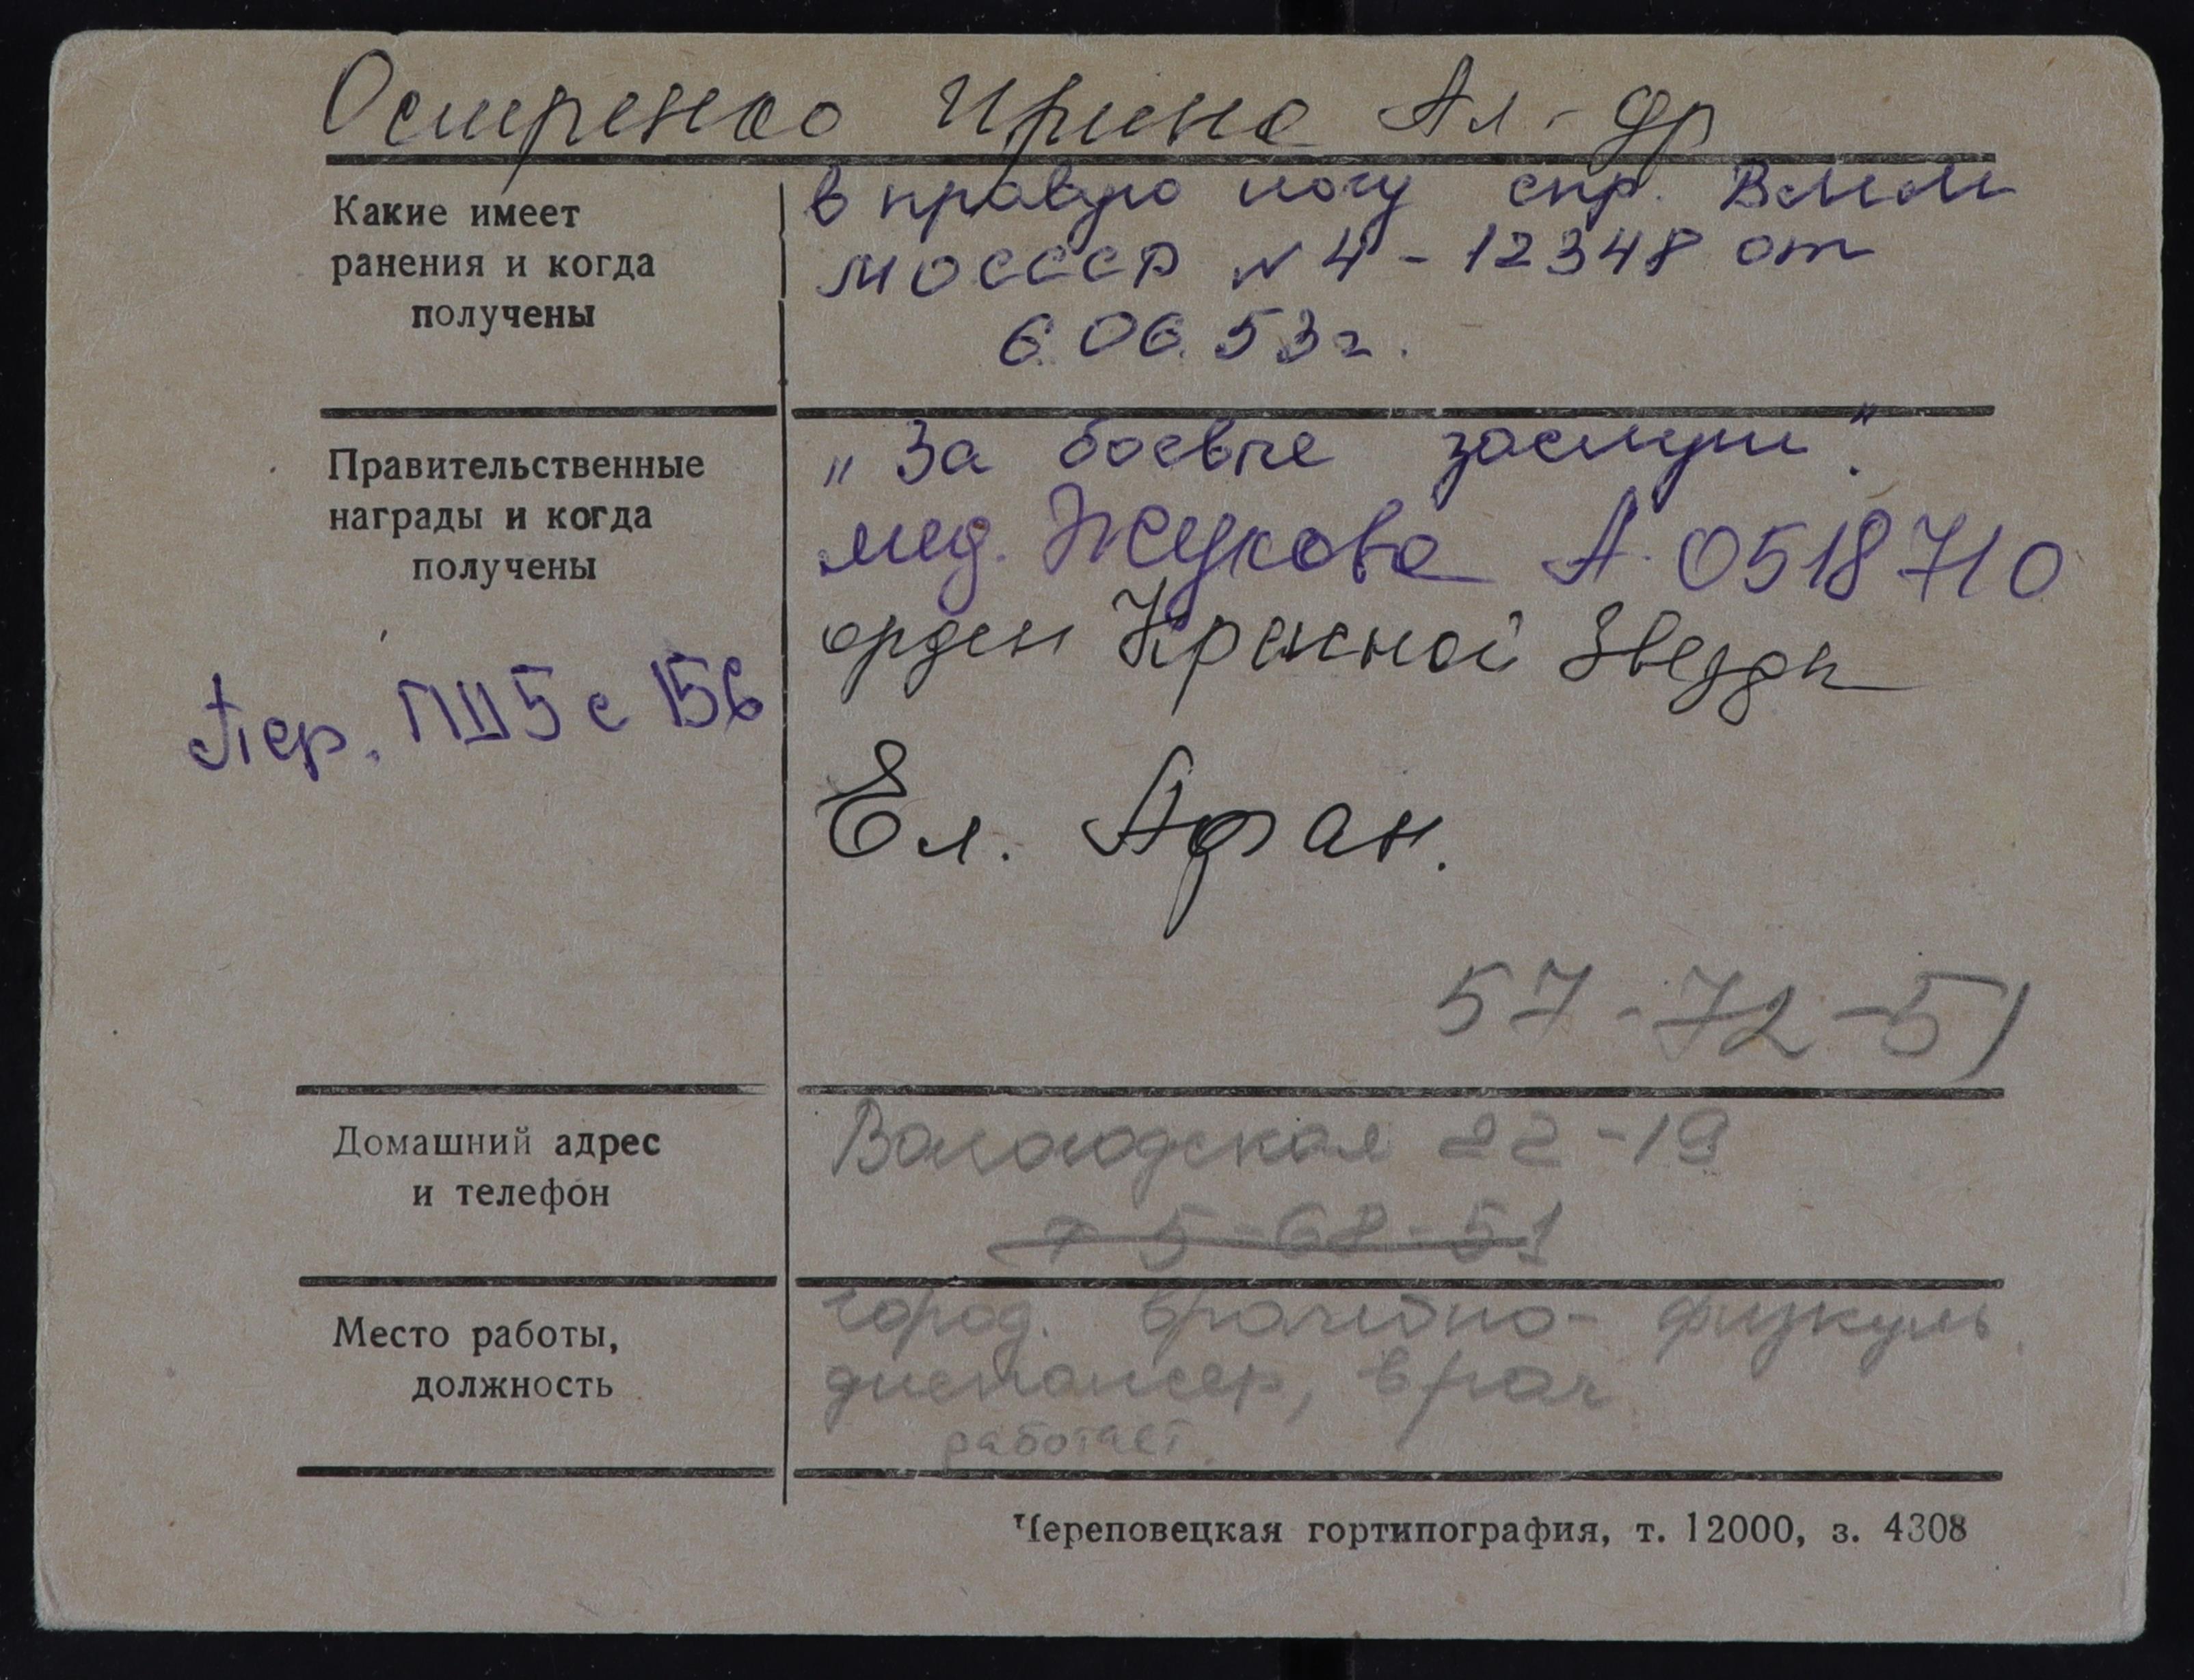 Остренко Ирина Ал-др
Какие имеет
ранения и когда
получены
в правую ногу спр. ВММ
МОСССР № 4-12348 от
6.06.53г.
Правительственные
награды и когда
получены
„За боевые заслуги".
мед. Жукова А. 0518710
орден Красной Звезды
пер. ПШ5 с 156
Ел. Афан.
57-72-51
Домашний адрес
и телефон
Вологодская 22-19
т 5-68-51
Место работы,
должность
город. врачебно-физкуль
диспансер, врач
работает
Череповецкая гортипография, т. 12000, з. 4308